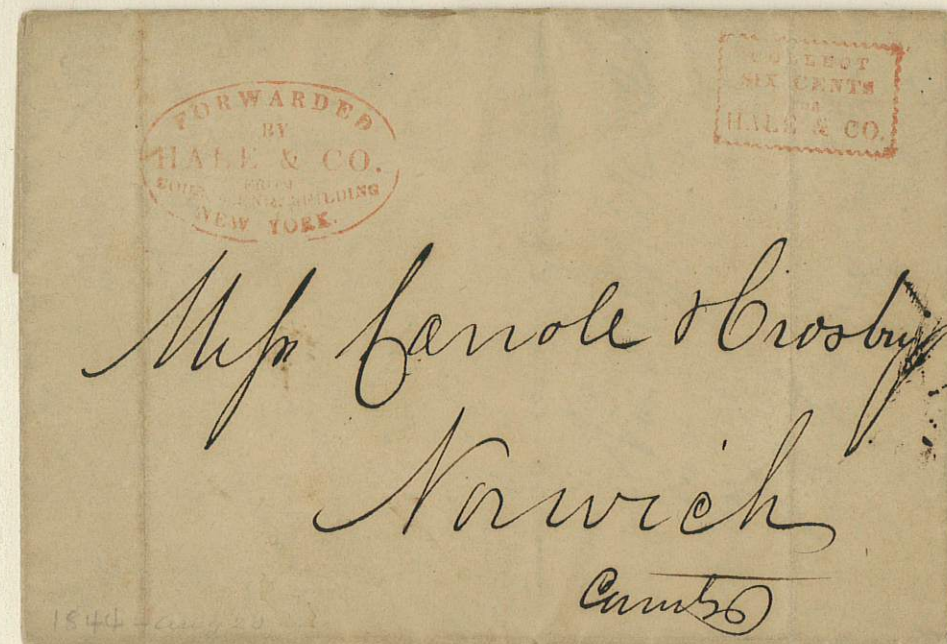 FORWARDED
BY
HALE & CO.
FROM
BUILDING
NEW YORK.
COLLECT
SIX CENTS
FOR
HALE & CO.
Mess Carrole & Crosby
Norwich
Conn
1844 - Aug 20